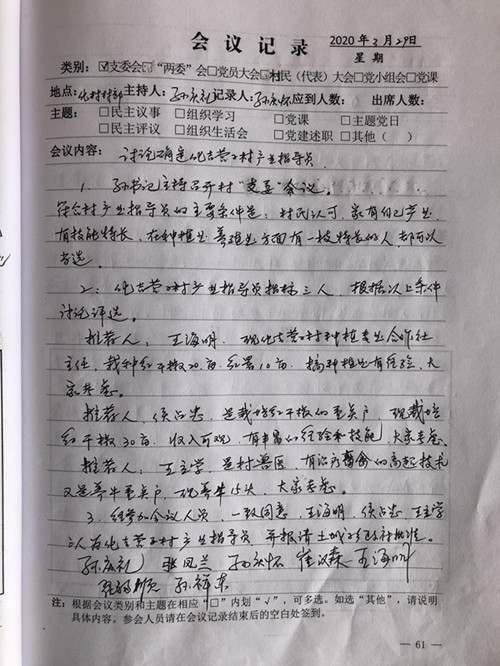 会议记录
2020年3月29日
星期
类别:☑支委会☑“两委”会□党员大会☑村民(代表)大会□党小组会□党课
地点:化村村部主持人:孙庆礼记录人:孙庆怀应到人数: 出席人数:
主题:□民主议事 □组织学习 □党课 □主题党日
□民主评议 □组织生活会 □党建述职 □其他( )
会议内容: 讨论确定化吉营子村产业指导员
1、孙书记主持召开村“支委”会议,
符合村产业指导员的主要条件是:村民认可,家有自己产业,
有技能特长,在种植业养殖业方面有一技特长的人,都可以
当选。
2、化吉营子村产业指导员指标三人,根据以上条件
讨论评选。
推荐人:王海明,现化吉营子村种植专业合作社
主任,栽种红干椒20亩,红薯10亩,搞种植业有经验,大
家考虑。
推荐人,侯占忠,是栽培红干椒的重点户,现栽培
红干椒30亩,收入可观,有丰富的经验和技能,大家考虑。
推荐人:王主学,是村兽医,有治疗畜禽的高超技术
又是养牛重点户,现养牛15头,大家考虑。
3、经参加会议人员一致同意,王海明,侯占忠,王主学
三人为化吉营子村产业指导员,并报请土城子镇政府批准。
孙庆礼 张凤兰 孙庆怀 崔汉森 王海明
孙祥东
注:根据会议类别和主题在相应“□”内划“√”,可多选。如选“其他”,请说明
具体内容。参会人员请在会议记录结束后的空白处签到。
— 61 —